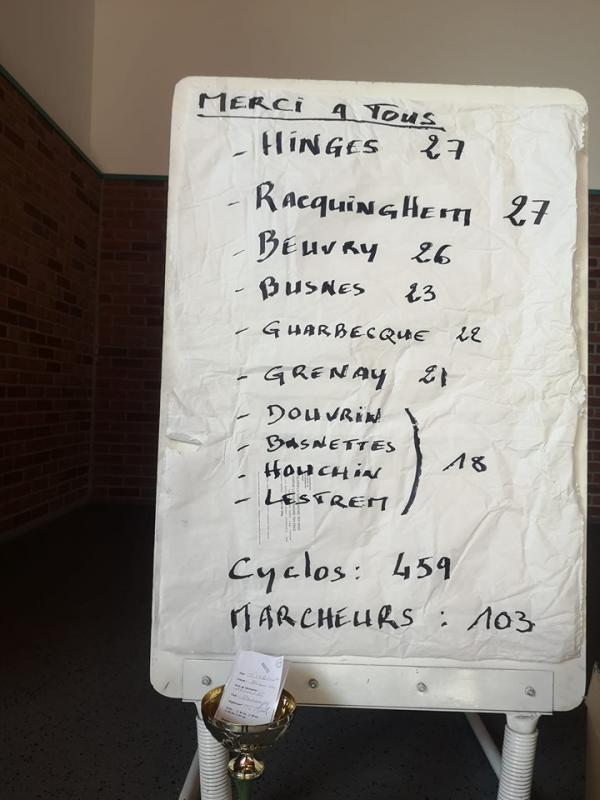 MERCI A TOUS
- HINGES 27
- RACQUINGHEM 27
- BEUVRY 26
- BUSNES 23
- GUARBECQUE 22
- GRENAY 21
- DOUVRIN
- BASNETTES
- HOUCHIN
- LESTREM
18
Cyclos: 459
MARCHEURS : 103